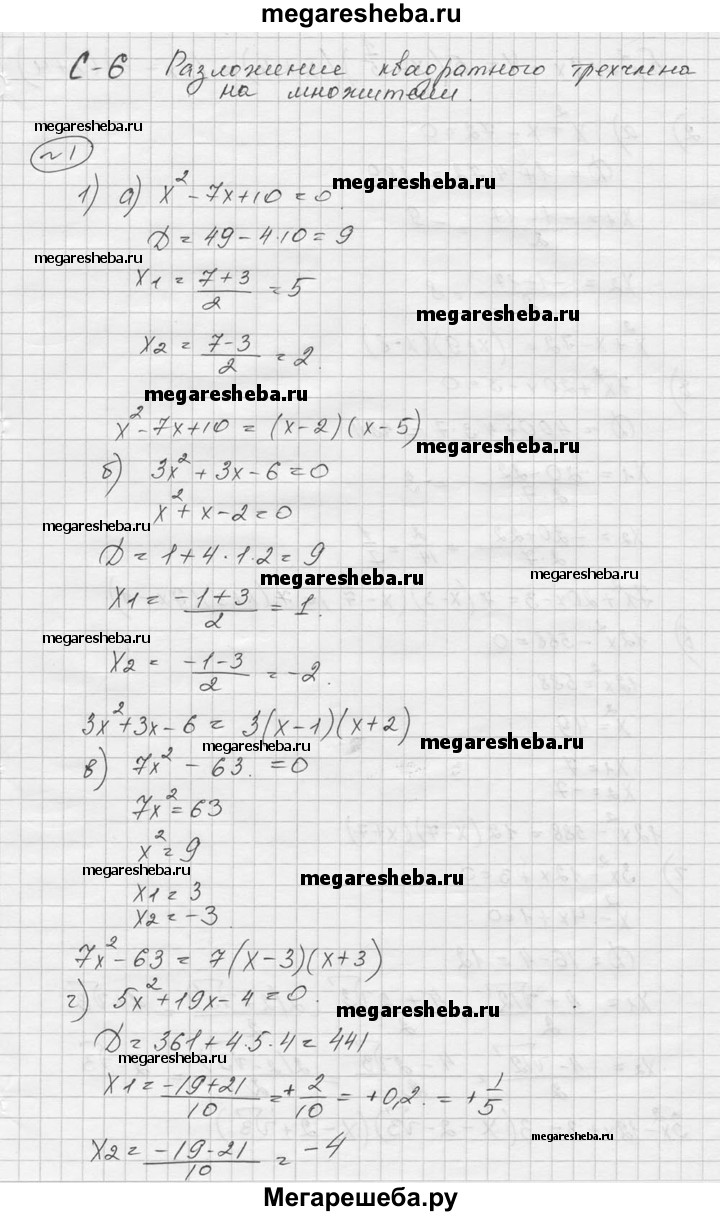 megaresheba.ru
С-6 Разложение квадратного трехчлена
на множители.
megaresheba.ru
№1
megaresheba.ru
1) а) x² - 7x + 10 = 0.
D = 49 - 4·10 = 9
megaresheba.ru
x1 = (7+3)/2 = 5
megaresheba.ru
x2 = (7-3)/2 = 2.
megaresheba.ru
x² - 7x + 10 = (x-2)(x-5)
megaresheba.ru
б) 3x² + 3x - 6 = 0
x² + x - 2 = 0
megaresheba.ru
D = 1 + 4·1·2 = 9
megaresheba.ru
megaresheba.ru
x1 = (-1+3)/2 = 1.
megaresheba.ru
x2 = (-1-3)/2 = -2.
3x² + 3x - 6 = 3(x-1)(x+2)
megaresheba.ru
megaresheba.ru
в) 7x² - 63. = 0
7x² = 63
x² = 9
megaresheba.ru
megaresheba.ru
x1 = 3
x2 = -3
7x² - 63 = 7(x-3)(x+3)
г) 5x² + 19x - 4 = 0.
megaresheba.ru
D = 361 + 4·5·4 = 441
megaresheba.ru
x1 = (-19+21)/10 = + 2/10 = +0,2. = + 1/5
megaresheba.ru
x2 = (-19-21)/10 = -4
Мегарешеба.ру